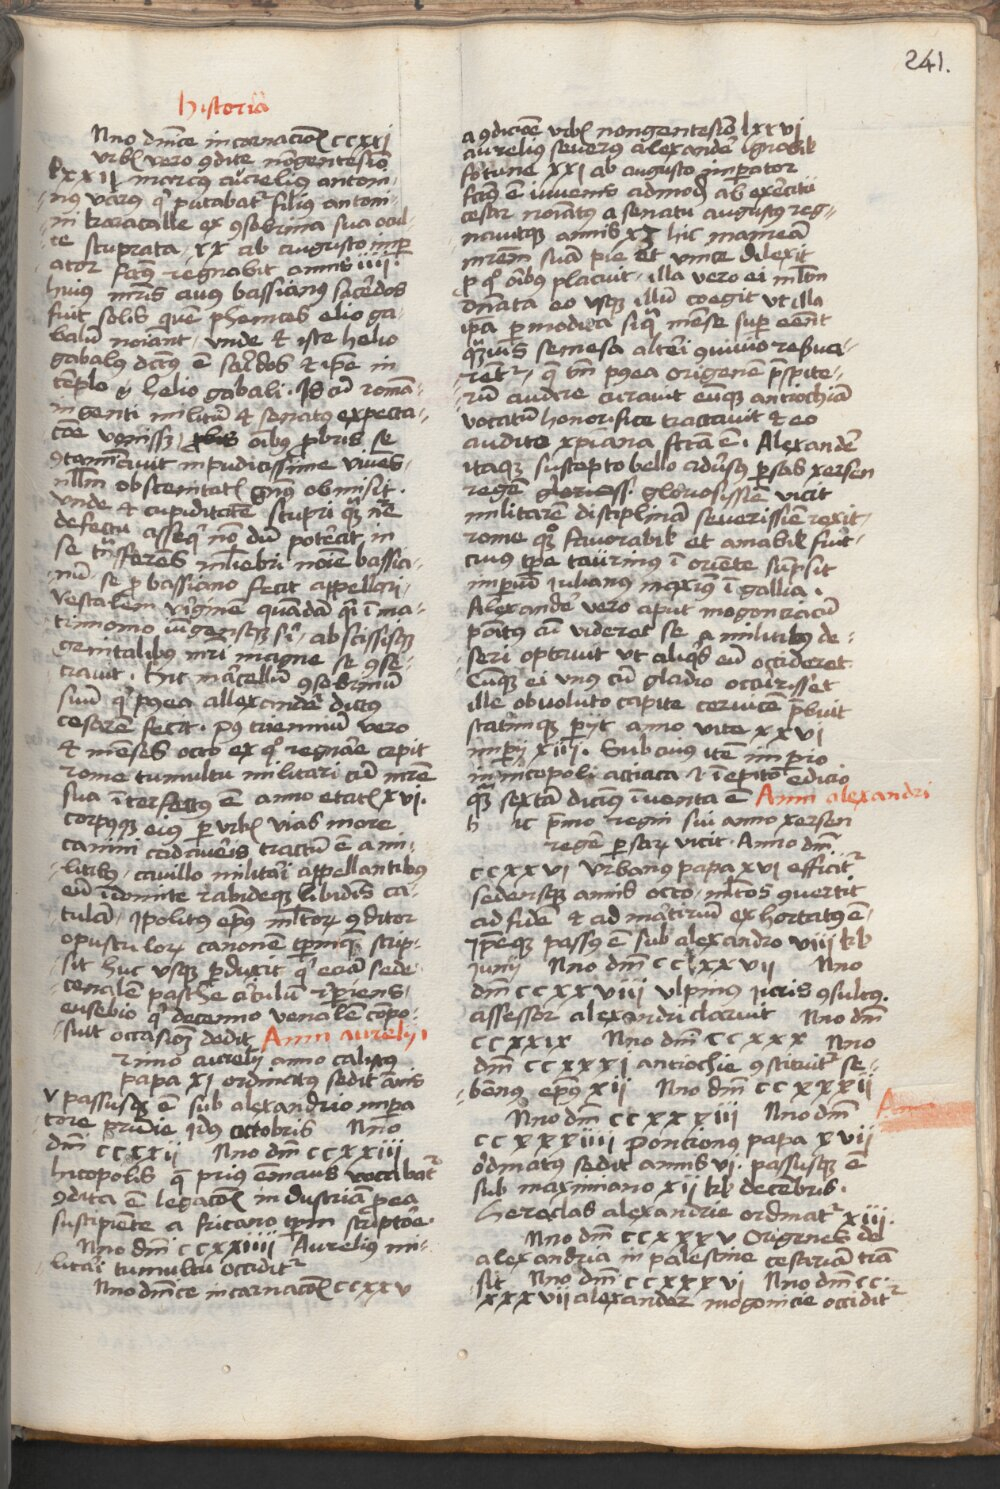 241.
historia
Nno dnice incarnacois ccxxi
urbis vero 9dite nongentesio
lxxii marcus aurelius antoni-
nus varus qui putabatur filius antoni-
ni karacalle ex 9sobrina sua
te stuprata xx ab augusto imper
ator factus regnabit annis iiii.
huius matris avus bassianus sacerdos
fuit solis quem phenices elio ga-
balum noiant unde et iste helio
gabalus dictus e sacerdos et ipse in
templo helio gabali. Is cum roma-
ingenti militum et senatus expecta-
coe venisset oibus probris se
9taminavit inpudicissime vivens
nullum obscenitatis genus obmisit.
unde et cupiditatem stupri quam
defectu assequi non dum poterat in
se transferens muliebri noie bassia-
nam se pro bassiano fecit appellari
vestalem virgine quamdam i ma-
trimonio iungesisque sibi abscissisque
genitalibus matri magne se 9se-
cravit. hic marcellum 9sobrinum
suum qui postea allexander dictus
cesarem fecit. post triennium vero
et menses octo ex quo regnare cepit
rome tumultu militari cum matre
sua interfectus e anno etatis xvi.
corpusque eius per urbis vias more
canini cadaveris tractum e a mi-
litibus cavillo militari appellantibus
eum indomite rabideque libidinis ca-
tulam ipolitus epus multorum 9ditor
opusculorum canonem scrip-
sit huc usque perduxit qui eciam sede-
cenalem pasche circulum reperiens
eusebio qui decenno venale compo-
suit occasionem dedit Anni aurelii
rimo aurelii anno calixtus
papa xi ordinatus sedit annis
v passusque e sub alexandrio impa
tore pridie idus octobris Nno
dni ccxxii Nno dni ccxxiii
Nicopolis que prius emaus vocabatur
9dita e legacois industriam pro ea
suscipiente africano scriptore.
Nno dni ccxxiiii Aurelius mi-
litari tumultu occiditur
Nno dnice incarnacois ccxxv
a 9dicione urbis nongentesio lxxvi
aurelius severus alexander ignobilis
fortune xxi ab augusto imperator
factus e iuvenis admodum ab exercitu
cesar noiatus a senatu augustus reg-
navitque annis hic mameam
matrem suam pie et unice dilexit
p quod oibus placuit. illa vero ei
donata eo usque illum coegit ut illa
ipsa permodica siqua mense super eent
quamvis semesa alteri 9vivio repua-
rentur que postea origenem prespite-
rum audire curavit eumque antiochiam
vocatum honorifice tractavit et eo
audito xpiana facta e. Alexander
itaque suscepto bello adversus persas xersen
regem gloriess. gloriosissie vicit
militarem disciplinam severissie rexit
rome quoque favorabilis et amabilis fuit
cuius tempore taurinus i oriente sumpsit
imperium iulianus maxius i gallia.
Alexander vero aput mogonciacum
positus cum viderat se a militibus de-
seri optavit ut aliquis eum occideret.
Cumque ei unus cum gladio occurrisset
ille obvoluto capite cervicem prebuit
statimque periit anno vite xxvi
imperii xiii. Sub cuius item impio
in nicopoli actiaca edicio
quam sextam dicimus inventa e Anni alexandri
h ic primo regni sui anno xersen
regem persarum vicit. Anno dni
ccxxvi Urbanus papa xvi efficitur
sedensque annis octo multos 9vertit
ad fidem et ad martirium exhortatus e
ipseque passus e sub alexandro viiii kl
junii Nno dni ccxxvii Nno
dni ccxxviii ulpinus iuris 9sultus.
assessor alexandri claruit Nno dni
ccxxix Nno dni ccxxx Nno
dni ccxxxi antiochie 9stituitur se-
bennus epus xii Nno dni ccxxxii
Nno dni ccxxxiii Nno dni
ccxxxiiii Poncionus papa xvii
ordinatus sedit annis vi. passusque e
sub maximiano xii kl decebris.
heraclas alexandrie ordinatur xiii.
Nno dni ccxxxv Origenes de
alexandria in palestine cesariam tran
sit Nno dni ccxxxvi Nno dni cc-
xxxvii alexander mogoncie occiditur